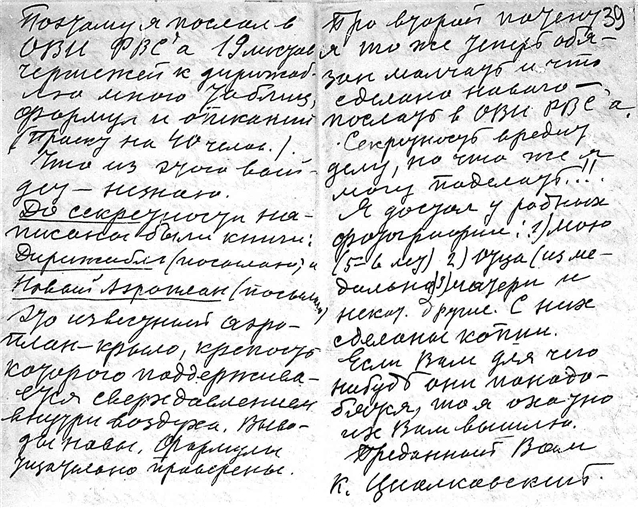 Поэтому я послал в
ОВИ РВС'а 19 листов
чертежей к дирижаб-
лю много таблиц,
формул и описаний
(Траску на 40 человек).
Что из этого вый-
дет – не знаю.
До секретности на-
писаны были книги:
Дирижабль (посылаю) и
Новый Аэроплан (посылаю)
это известный аэро-
план-крыло, крепость
которого поддержива-
ется сверхдавлением
внутри воздуха. Выво-
ды новы. Формулы
тщательно проверены.
39
Про второй почему
я то же теперь обя-
зан молчать и что
сделано нового –
послать в ОВИ РВС'а.
Секретность вредит
делу, но что же я
могу поделать!!!
Я достал у родных
фотографии: 1) мою
(5-и лет) 2) отца (из ме-
дальона) 3) матери и
некот. другие. С них
сделаны копии.
Если Вам для чего
нибудь они понадо-
бятся, то я охотно
их Вам вышлю.
Преданный Вам
К. Циолковский.